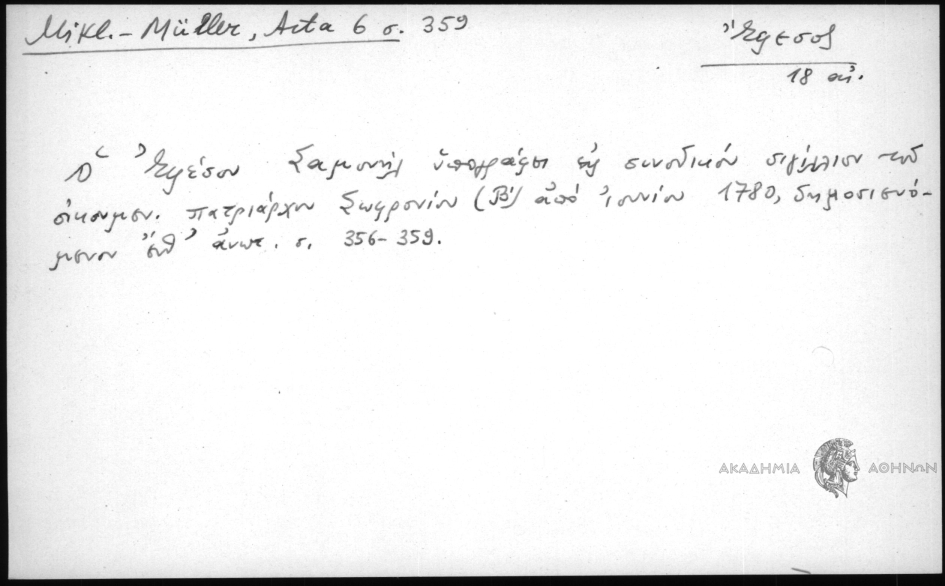 Mikl.-Müller, Acta 6 σ. 359
Ἔφεσος
18 αἰ.
Ὁ Ἐφέσου Σαμουὴλ ὑπογράφει εἰς συνοδικὸν σιγίλλιον τοῦ
οἰκουμεν. πατριάρχου Σωφρονίου (Β') ἀπὸ ἰουνίου 1780, δημοσιευό-
μενον ἔνθ' ἀνωτ. σ. 356-359.
ΑΚΑΔΗΜΙΑ ΑΘΗΝΩΝ